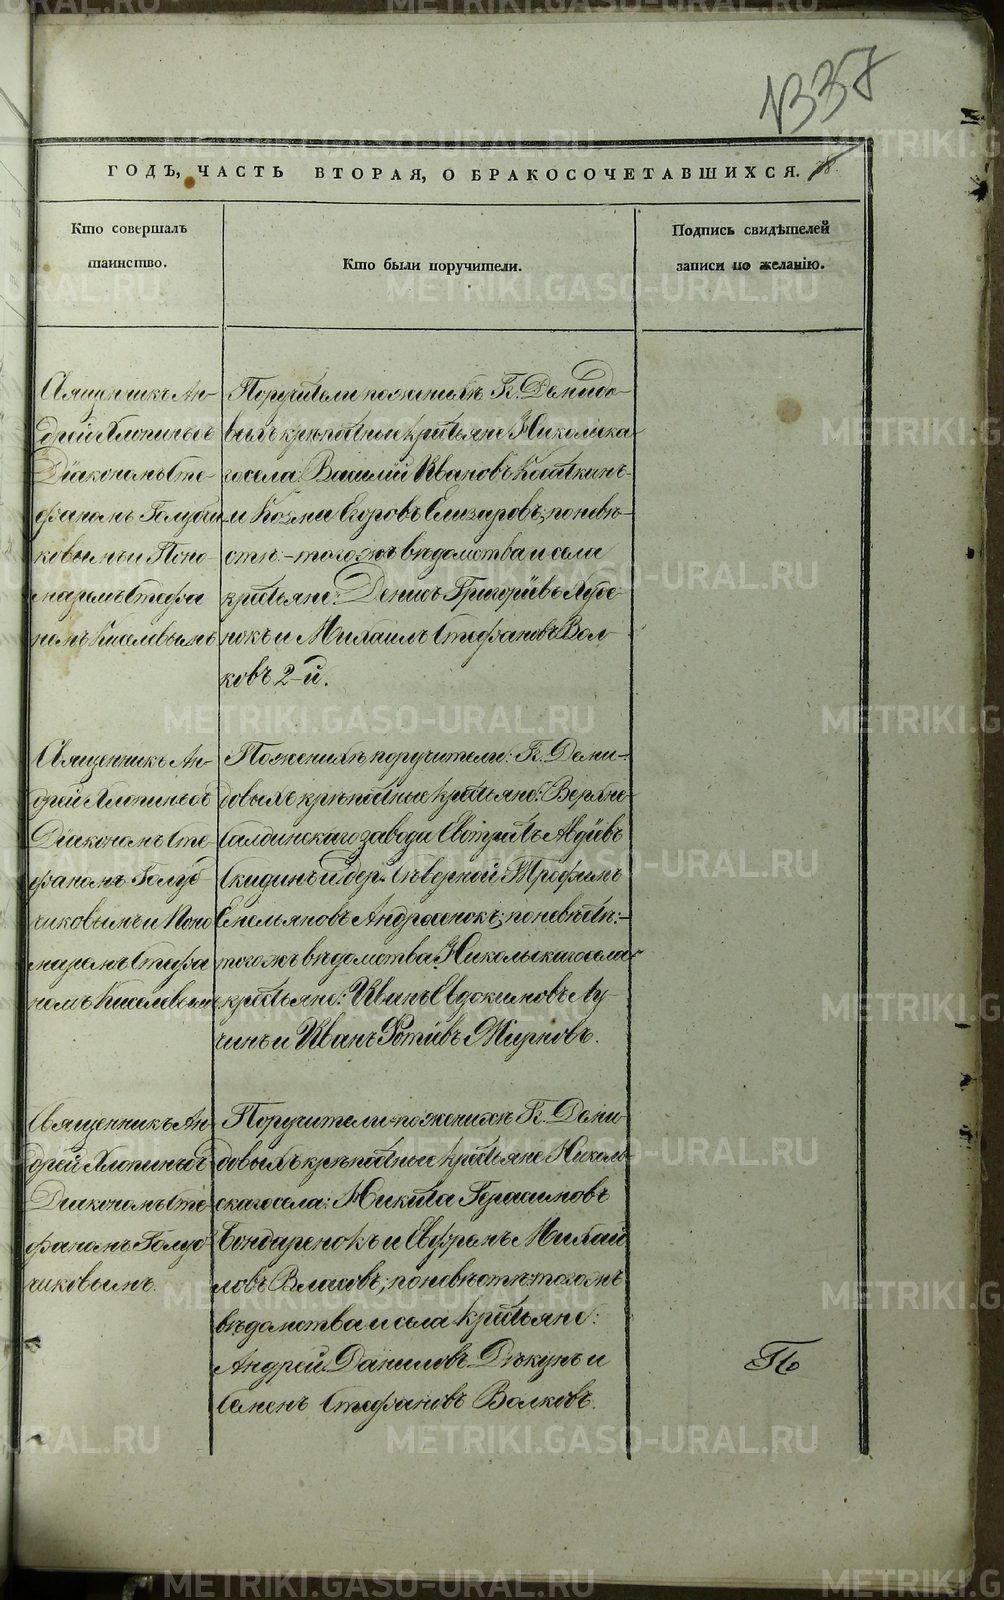 1337
ГОДЪ, ЧАСТЬ ВТОРАЯ, О БРАКОСОЧЕТАВШИХСЯ.
Кто совершалъ
таинство.
Кто были поручители.
Подпись свидѣтелей
записи по желанію.
Священникъ Ан-
дрей Хлопинъ съ
Діакономъ Сте-
фаномъ Голубчи
ковымъ и Поно-
маремъ Стефа
номъ Киселевымъ
Поручители по женихѣ Г. Демидо-
выхъ крѣпостные крестьяне Никольска
го села: Василій Ивановъ Косаткинъ
и Козма Егоровъ Елизаровъ; по невѣ-
стѣ: – того жъ вѣдомства и села
крестьяне: Денисъ Григорьевъ Дубе-
нокъ и Михаилъ Стефановъ Вол-
ковъ 2-й.
Священникъ Ан-
дрей Хлопинъ съ
Діакономъ Сте
фаномъ Голуб-
чиковымъ и Поно
маремъ Стефа
номъ Киселевымъ
По женихѣ поручители: Г. Деми-
довыхъ крѣпостные крестьяне: Верхне-
салдинскаго завода Евстратъ Авдіевъ
Скидинъ и дер. Сѣверной Трофимъ
Емельяновъ Андросенокъ; по невѣстѣ: –
того жъ вѣдомства Никольскаго села
крестьяне: Иванъ Евдокимовъ Лу-
чинъ и Иванъ Фотіевъ Жирновъ.
Священникъ Ан-
дрей Хлопинъ съ
Діакономъ Сте
фаномъ Голуб
чиковымъ.
Поручители по женихѣ Г. Деми
довыхъ крѣпостные крестьяне Николь
скаго села: Никита Герасимовъ
Бондаренокъ и Ефремъ Михай
ловъ Власовъ; по невѣстѣ: того жъ
вѣдомства и села крестьяне:
Андрей Даниловъ Дѣкунъ и
Семенъ Стефановъ Волковъ.
METRIKI.GASO-URAL.RU